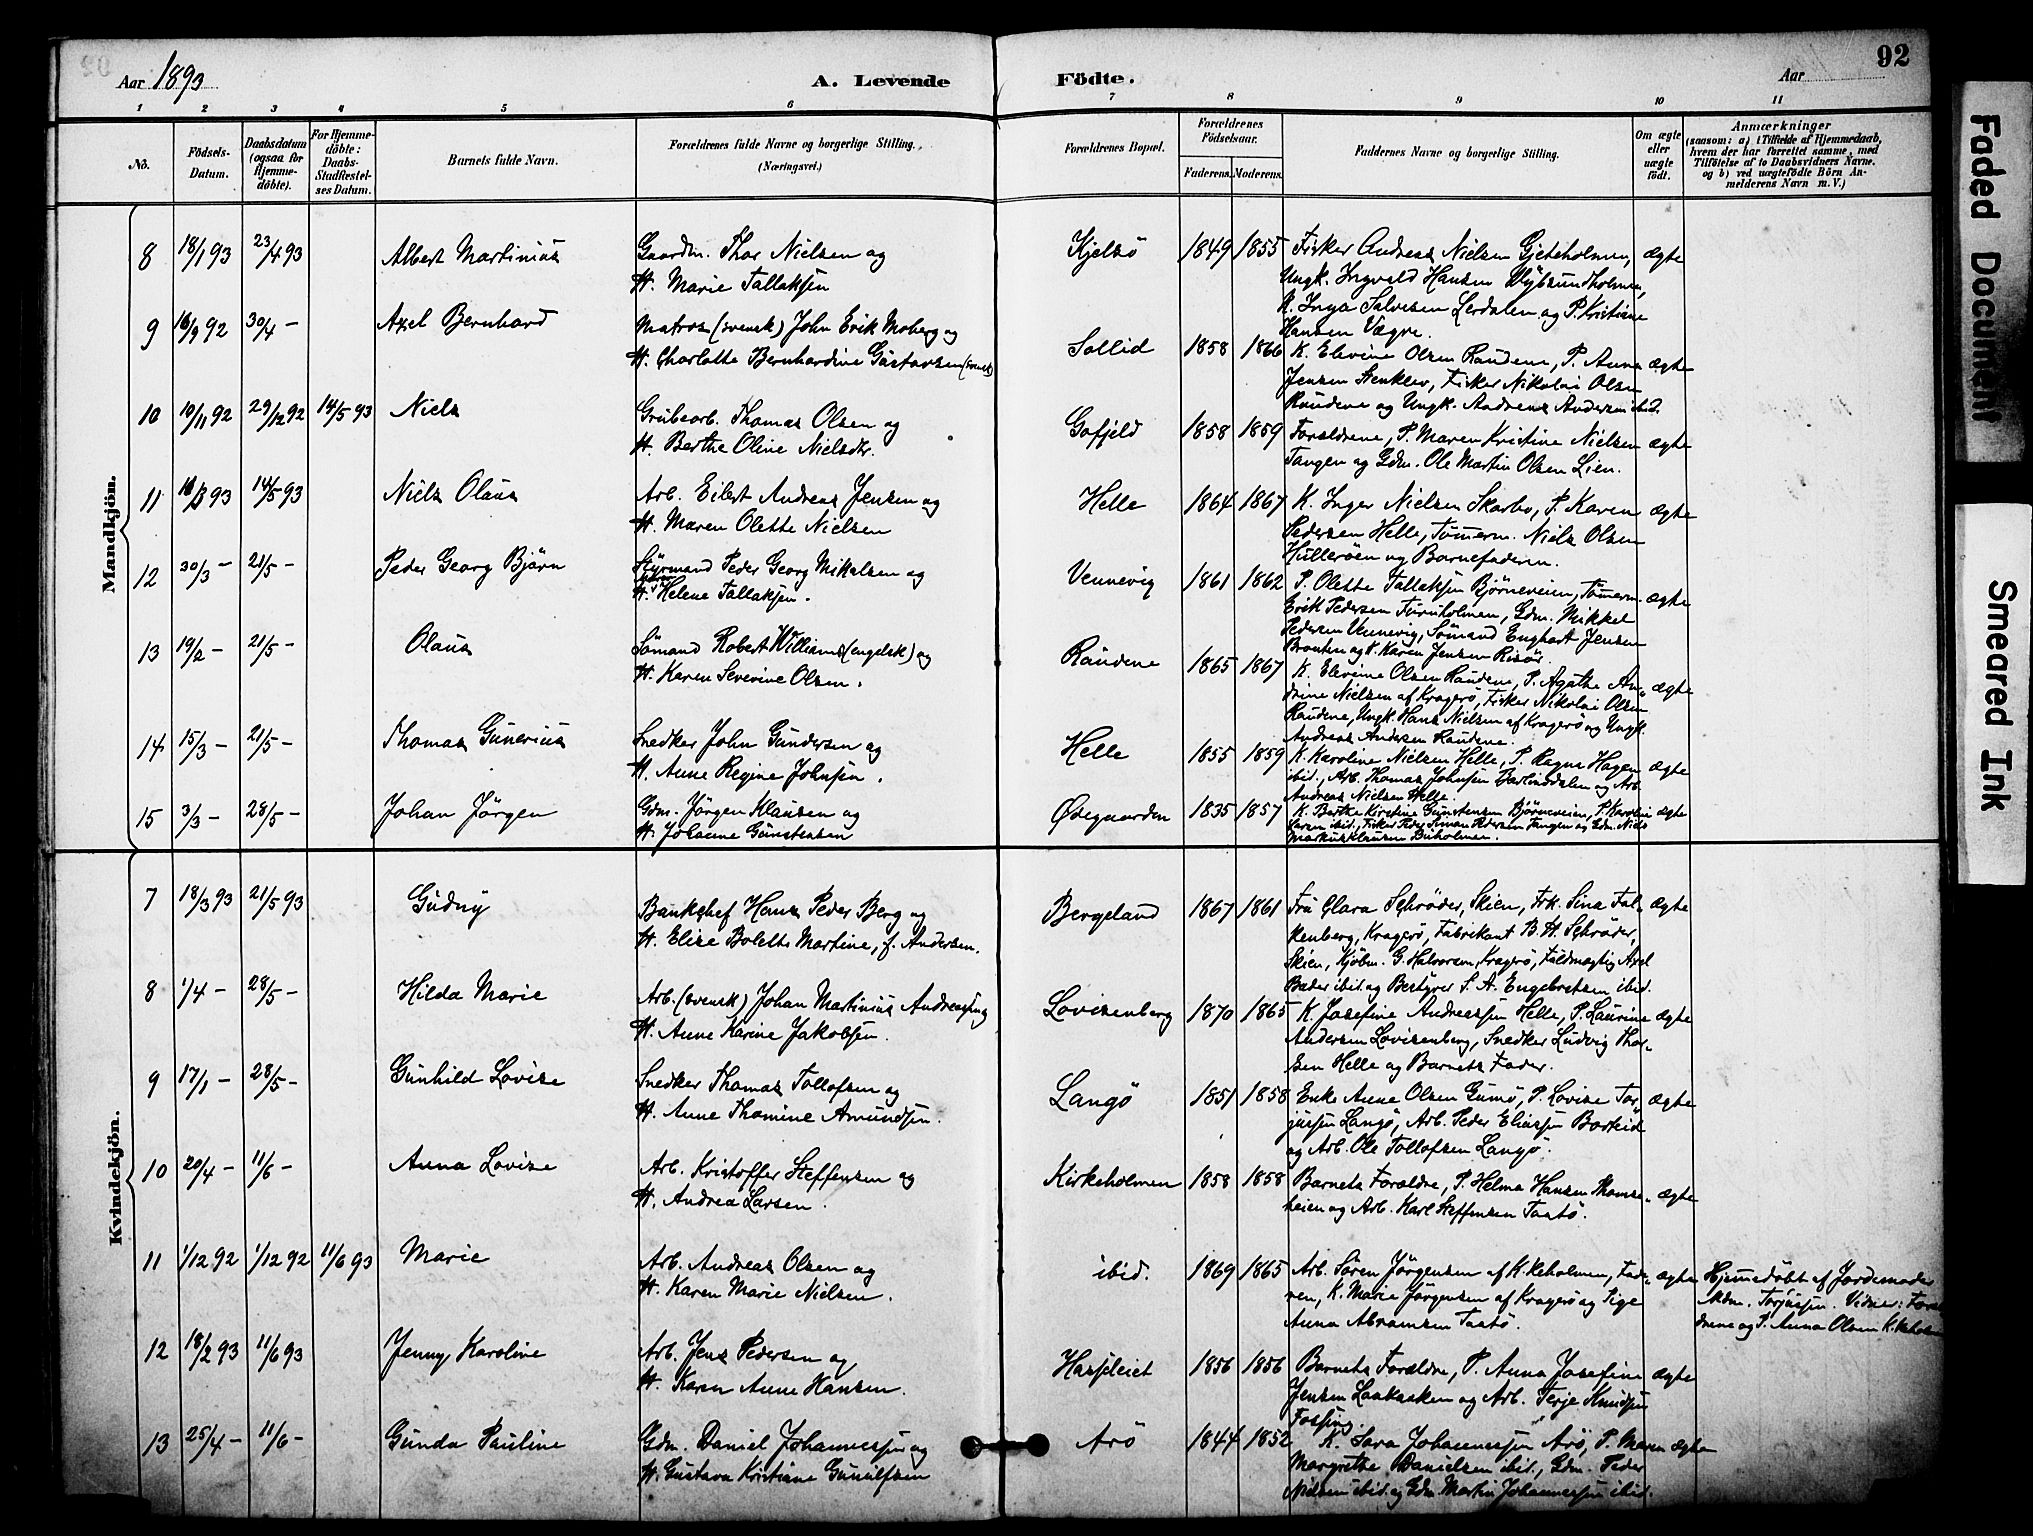 92
Aar 1893
A. Levende
Födte.
Aar
1 2 3 4 5 6 7 8 9 10 11
No.
Födsels-Datum.
Daabsdatum (ogsaa for Hjemme-döbte).
For Hjemme-döbte: Daabs-Stadfæstel-ses Datum.
Barnets fulde Navn.
Forældrenes fulde Navne og borgerlige Stilling. (Næringsvei.)
Forældrenes Bopæl.
Forældrenes Födselsaar.
Faderens. Moderens.
Faddernes Navne og borgerlige Stilling.
Om ægte eller uægte födt.
Anmærkninger
(saasom: a) i Tilfælde af Hjemmedaab,
hvem der har forrettet samme, med
Tilföielse af to Daabsvidners Navne.
og b) ved uægtefödte Börn An-
melderens Navn m. V.)
Mandkjön.
8 18/1 93 23/4 93 Albert Martinius Gaardm. Thor Nielsen og Kjelsö 1849 1855 Fisker Andreas Nielsen Gjeteholmen, ægte
H. Marie Tallaksen Ungk. Ingvald Hansen
K. Inga Salvesen Lerdalen og P. Kristiane
Hansen Vægre.
9 16/9 92 30/4 – Axel Bernhard Matros (svensk) John Erik Moberg og Sollid 1858 1866 K. Elevine Olsen Raudene, P. Anna ægte
H. Charlotte Bernhardine Gustavsen (svensk) Jensen Stenklev, Fisker Nikolai Olsen
Raudene og Ungk. Andreas Andersen ibid.
10 10/11 92 29/12 92 14/5 93 Niels Grubearb. Thomas Olsen og Gofjeld 1858 1859 Forældrene, P. Maren Kristine Nielsen ægte
H. Berthe Oline Nielsdr. Tangen og Gdm. Ole Martin Olsen Lien.
11 16/3 93 14/5 93 Niels Olaus Arb. Eilert Andreas Jensen og Helle 1864 1867 K. Inger Nielsen Skarbo, P. Karen ægte
H. Maren Olette Nielsen Pedersen Helle, Tömerm. Niels Olsen
Hulleröen og Barnefaderen.
12 30/3 – 21/5 – Peder Georg Bjørn Styrmand Peder Georg Mikalsen og Vennevig 1861 1862 P. Olette Tallaksen Bjørneveien, Tömerm. ægte
H. Helene Tallaksen. Erik Pedersen Furuholmen, Gdm. Mikkel
Pedersen Vennevig, Sömand Enghart Jensen
Braaten og K. Karen Jensen Risör.
13 19/2 – 21/5 – Olaus Sömand Robert Williams (engelsk) og Raudene 1865 1867 K. Elevine Olsen Raudene, P. Agathe An- ægte
H. Karen Severine Olsen. drine Nielsen af Kragerö, Fisker Nikolai Olsen
Raudene, Ungk. Hans Nielsen af Kragerö og Ungk.
Andreas Andersen Raudene.
14 15/3 – 21/5 – Thomas Gunerius Snedker John Gundersen og Helle 1855 1859 K. Karoline Nielsen Helle, P. Ragna Hagen ægte
H. Anne Regine Johnsen. ibid., Arb. Thomas Johnsen Barlinddalen og Arb.
Andreas Nielsen Helle.
15 3/3 – 28/5 – Johan Jörgen Gdm. Jörgen Klausen og Ødegaarden 1835 1857 K. Berthe Kirstine Gunstensen Bjørneveien, P. Karoline ægte
H. Johanne Gunstensen Larsen ibid., Fisker Peder Simon Pedersen Tangen og Gdm. Niels
Markus Klausen Buholmen.
Kvindekjön.
7 18/3 93 21/5 93 Gudny Bankchef Hans Peder Berg og Bergland 1867 1861 Fru Clara Schröder, Skien, Frk. Sina Fal- ægte
H. Elise Bolette Martine, f. Andersen. kenberg, Kragerö, Fabrikant B. H. Schröder,
Skien, Kjøbm. G. Halvorsen, Kragerö, Fuldmægtig Axel
Bader ibid. og Bestyrer S. A. Engebretsen ibid.
8 1/4 – 28/5 – Hilda Marie Arb. (svensk) Johan Martinius Andreassen og Lovisenberg 1870 1865 K. Josefine Andreassen Helle, P. Laurine ægte
H. Anne Karine Jakobsen. Andersen Lovisenberg, Snedker Ludvig Thor-
sen Helle og Barnets Fader.
9 17/1 – 28/5 – Gunhild Lovise Snedker Thomas Tollofsen og Langö 1851 1858 Enke Anne Olsen Gumö, P. Lovise Tor- ægte
H. Anne Thomine Amundsen. jussen Langö, Arb. Peder Eliassen Barteid
og Arb. Ole Tollofsen Langö.
10 20/4 – 11/6 – Anna Lovise Arb. Kristoffer Steffensen og Kirkeholmen 1858 1858 Barnets Forældre, P. Helma Hansen Thomes- ægte
H. Andrea Larsen. heien og Arb. Karl Steffensen Taatö.
11 1/12 92 1/12 92 11/6 93 Marie Arb. Andreas Olsen og ibid. 1869 1865 Arb. Sören Jörgensen af K.keholmen, Fade- ægte Hjemmedöbt af Jordemoder
H. Karen Marie Nielsen. ren, K. Marie Jörgensen af Kragerö og Pige Mdm. Torjussen. Vidner: Foræl
Anna Abramsen Taatö. drene og P. Anna Olsen K.keholm
12 18/2 93 11/6 93 Jenny Karoline Arb. Jens Pedersen og Hasseleiet 1856 1856 Barnets Forældre, P. Anna Josefine ægte
H. Karen Anne Hansen. Jensen Laabakken og Arb. Terje Knudsen
Fossing.
13 25/4 – 11/6 – Gunda Pauline Gdm. Daniel Johannessen og Arö 1844 1852 K. Sara Johannessen Arö, P. Maren ægte
H. Gustava Kristiane Gunulfsen Margrethe Danielsen ibid., Gdm. Peder
Nielsen ibid. og Gdm Martin Johannessen ibid.
Faded Document
Smeared Ink